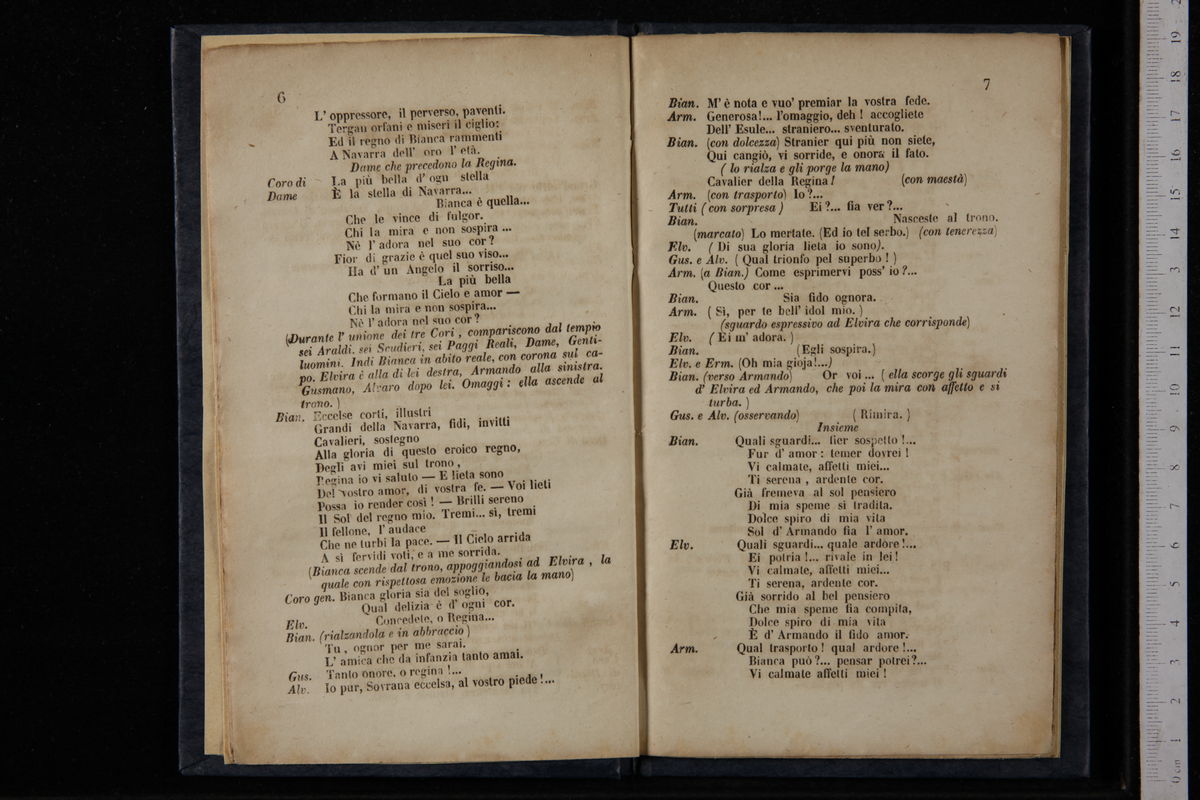 6
L' oppressore, il perverso, paventi.
Tergan orfani e miseri il ciglio:
Ed il regno di Bianca rammenti
A Navarra dell' oro l' età.
Dame che precedono la Regina.
Coro di Dame La più bella d' ogn stella
È la stella di Navarra...
Bianca è quella...
Che le vince di fulgor.
Chi la mira e non sospira ...
Nè l' adora nel suo cor?
Fior di grazie è quel suo viso...
Ha d' un Angelo il sorriso...
La più bella
Che formano il Cielo e amor —
Chi la mira e non sospira...
Nè l' adora nel suo cor?
(Durante l' unione dei tre Cori, compariscono dal tempio
sei Araldi, sei Scudieri, sei Paggi Reali, Dame, Genti-
luomini. Indi Bianca in abito reale, con corona sul ca-
po. Elvira è alla di lei destra, Armando alla sinistra.
Gusmano, Alvaro dopo lei. Omaggi: ella ascende al
trono.)
Bian. Eccelse corti, illustri
Grandi della Navarra, fidi, invitti
Cavalieri, sostegno
Alla gloria di questo eroico regno,
Degli avi miei sul trono,
Regina io vi saluto — E lieta sono
Del vostro amor, di vostra fe. — Voi lieti
Possa io render così! — Brilli sereno
Il Sol del regno mio. Tremi... sì, tremi
Il fellone, l' audace
Che ne turbi la pace. — Il Cielo arrida
A sì fervidi voti, e a me sorrida.
(Bianca scende dal trono, appoggiandosi ad Elvira, la
quale con rispettosa emozione le bacia la mano)
Coro gen. Bianca gloria sia del soglio,
Qual delizia è d' ogni cor.
Elv. Concedete, o Regina...
Bian. (rialzandola e in abbraccio)
Tu, ognor per me sarai.
L' amica che da infanzia tanto amai.
Gus. Tanto onore, o regina!...
Alv. Io pur, Sovrana eccelsa, al vostro piede!...
7
Bian. M' è nota e vuo' premiar la vostra fede.
Arm. Generosa!... l'omaggio, deh! accogliete
Dell' Esule... straniero... sventurato.
Bian. (con dolcezza) Stranier qui più non siete,
Qui cangiò, vi sorride, e onora il fato.
(lo rialza e gli porge la mano)
Cavalier della Regina! (con maestà)
Arm. (con trasporto) Io?...
Tutti (con sorpresa) Ei?... fia ver?...
Bian. Nasceste al trono.
(marcato) Lo mertate. (Ed io tel serbo.) (con tenerezza)
Elv. (Di sua gloria lieta io sono).
Gus. e Alv. (Qual trionfo pel superbo!)
Arm. (a Bian.) Come esprimervi poss' io?...
Questo cor...
Bian. Sia fido ognora.
Arm. (Sì, per te bell' idol mio.)
(sguardo espressivo ad Elvira che corrisponde)
Elv. (Ei m' adora.)
Bian. (Egli sospira.)
Elv. e Erm. (Oh mia gioja!...)
Bian. (verso Armando) Or voi... (ella scorge gli sguardi
d' Elvira ed Armando, che poi la mira con affetto e si
turba.)
Gus. e Alv. (osservando) (Rimira.)
Insieme
Bian. Quali sguardi... fier sospetto!...
Fur d' amor: temer dovrei!
Vi calmate, affetti miei...
Ti serena, ardente cor.
Già fremeva al sol pensiero
Di mia speme sì tradita.
Dolce spiro di mia vita
Sol d' Armando fia l' amor.
Elv. Quali sguardi... quale ardore!...
Ei potria!... rivale in lei!
Vi calmate, affetti miei...
Ti serena, ardente cor.
Già sorrido al bel pensiero
Che mia speme fia compita,
Dolce spiro di mia vita
È d' Armando il fido amor.
Arm. Qual trasporto! qual ardore!...
Bianca può?... pensar potrei?...
Vi calmate affetti miei!
0 cm 1 2 3 4 5 6 7 8 9 10 11 12 13 14 15 16 17 18 19